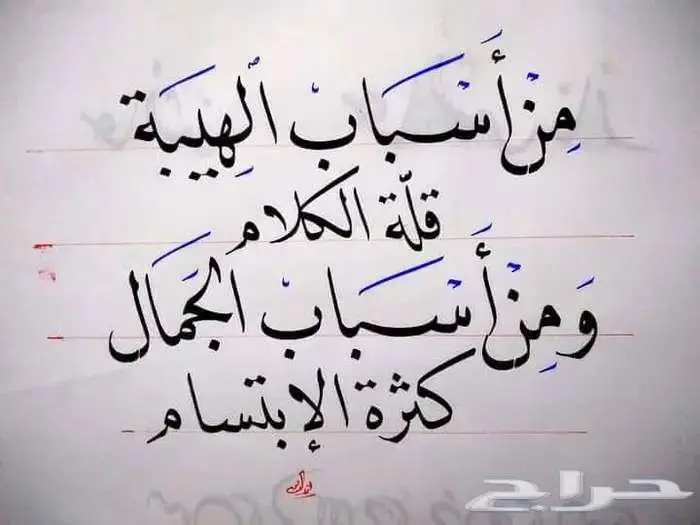 مِنْ أَسْبَابْ الْهِيبَة
قلّة الكلام
وَمِنْ أَسْبَابْ الجَمَال
كثرة الإبتسام
حراج